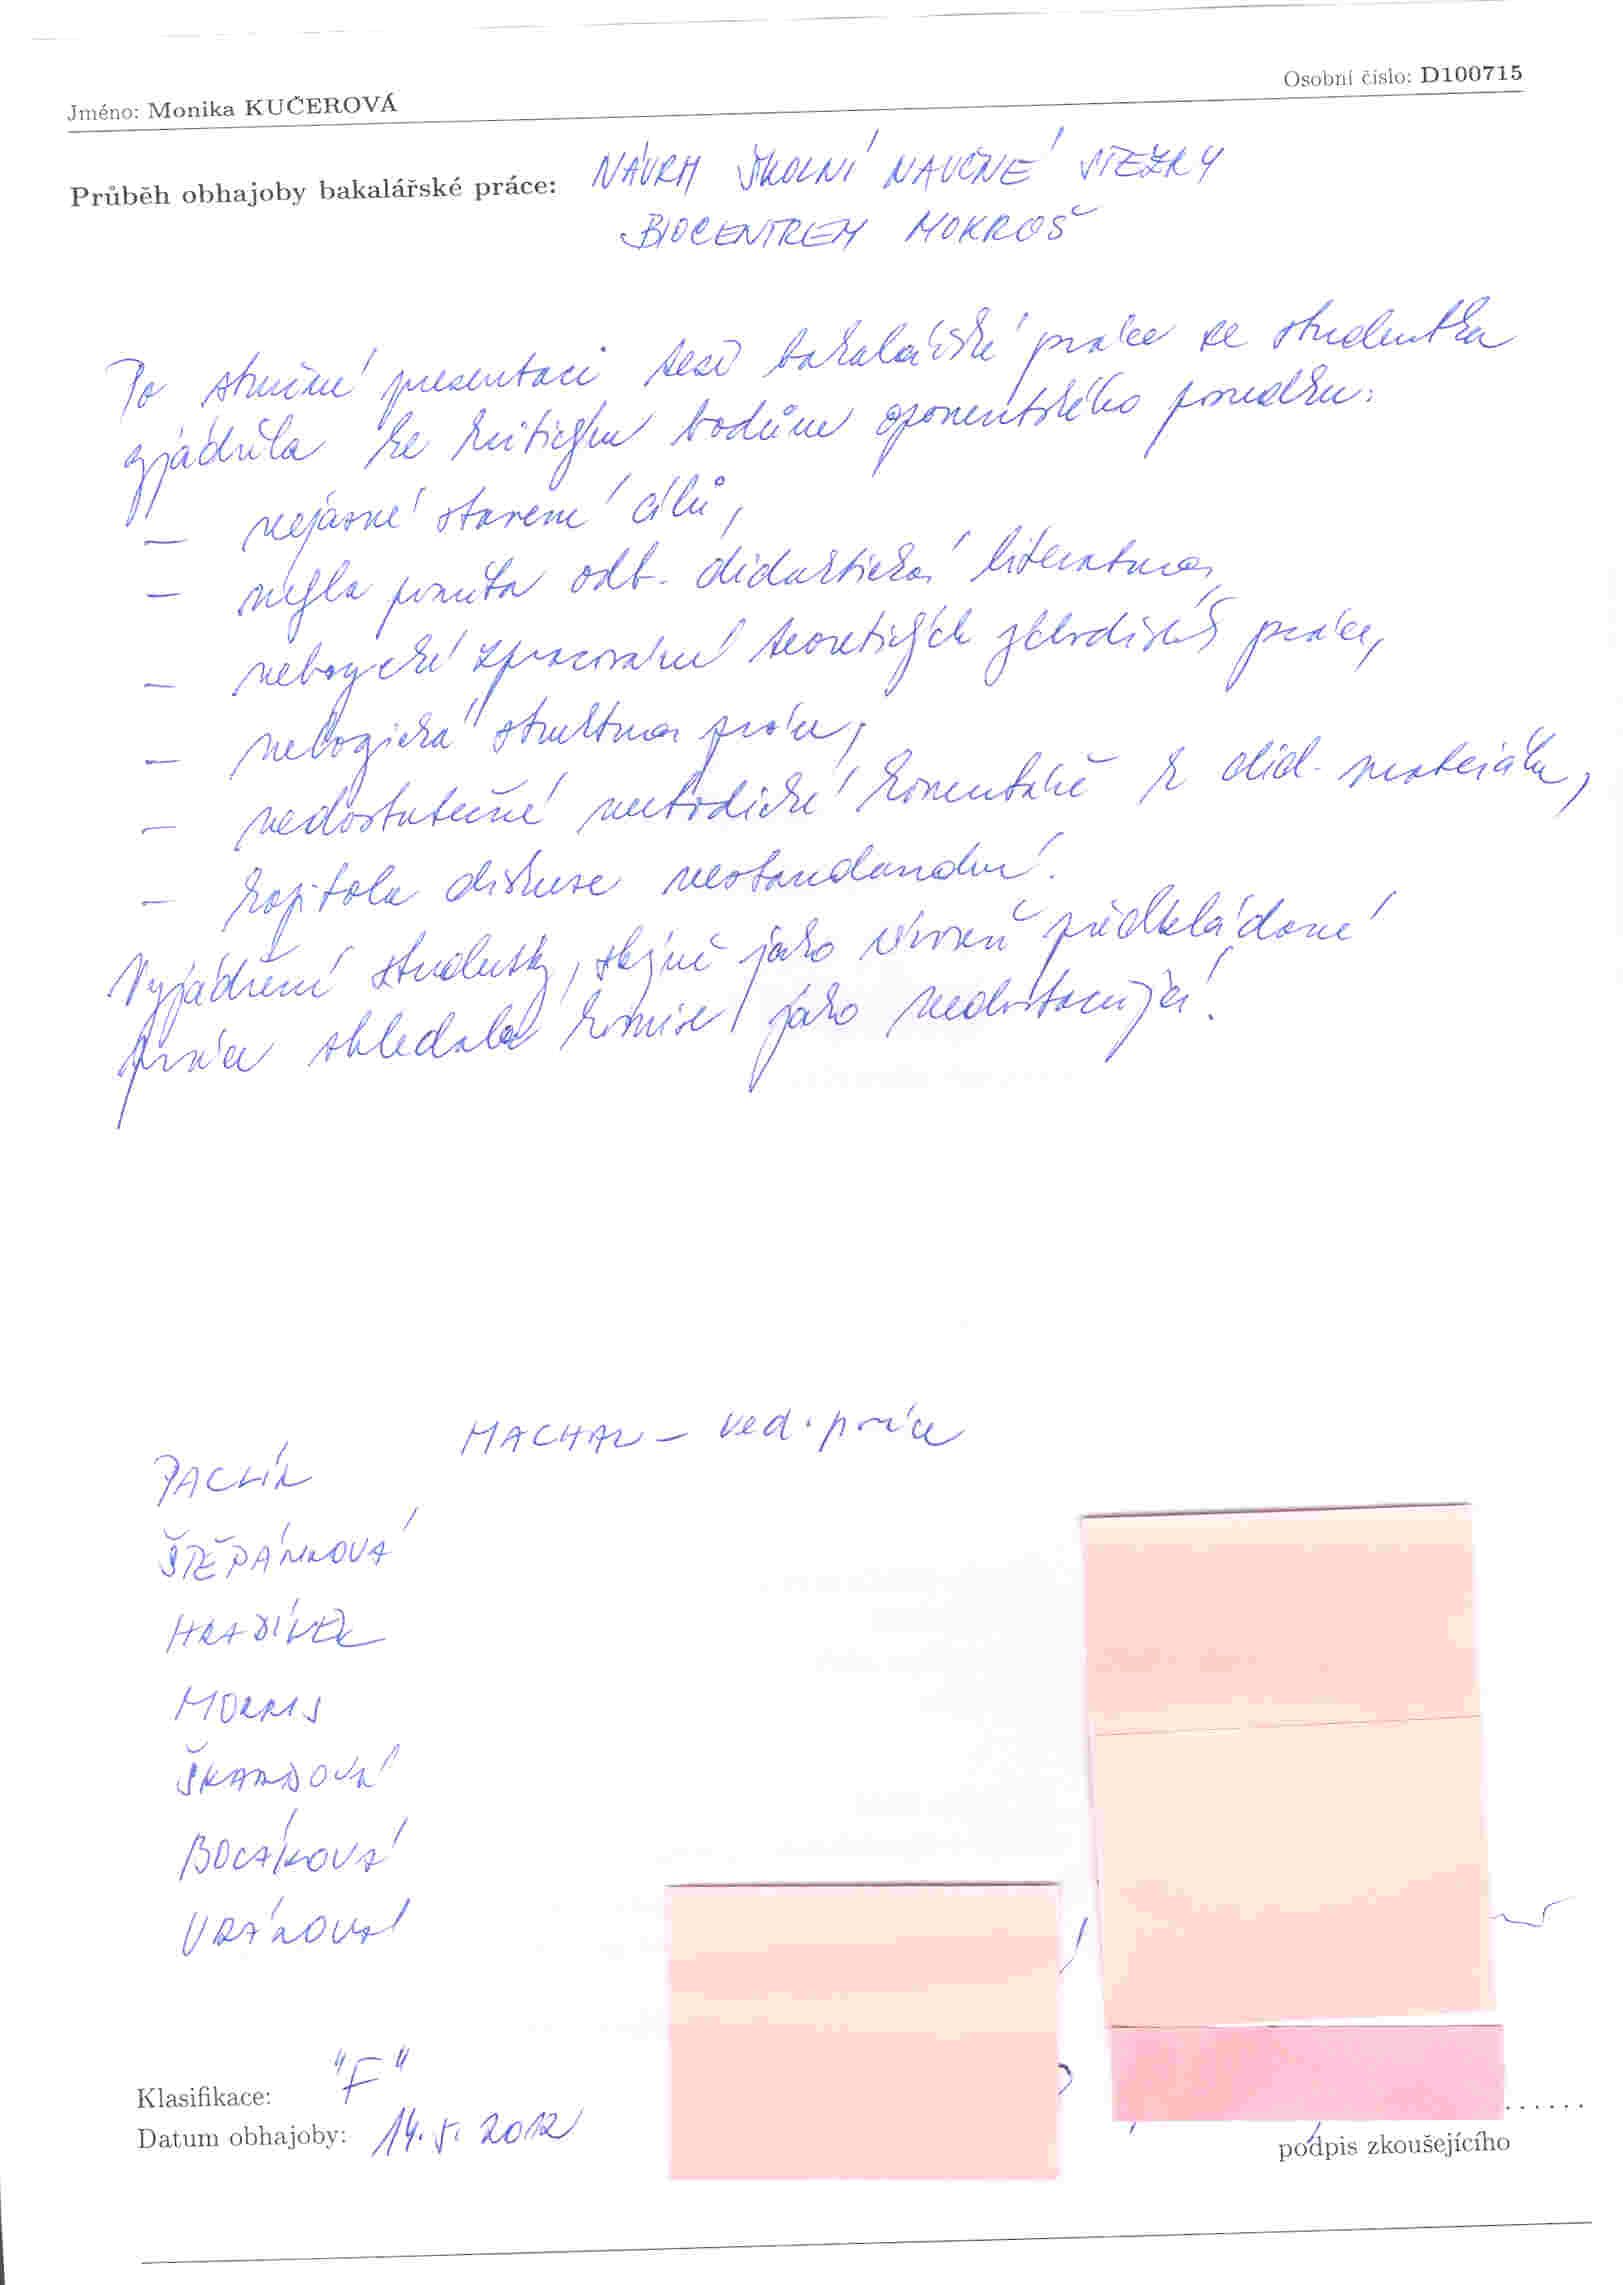 Jméno: Monika KUČEROVÁ
Osobní číslo: D100715
Průběh obhajoby bakalářské práce: NÁVRH ŠKOLNÍ NAUČNÉ STEZKY
BIOCENTREM MOKROŠ
Po stručné presentaci tezí bakalářské práce se studentka
vyjádřila ke kritickým bodům oponentského posudku:
— nejasné stavení cílů,
— nebyla použita odb. didaktická literatura,
— zpracování teoretických východisek práce,
— nelogická struktura práce,
— nedostatečné metodické komentáře k did. materiálu,
— kapitola diskuse nestandardní.
Vyjádření studentky, stejně jako úroveň předkládané
práce shledala komise jako nedostačující.
MACHAL – ved. práce
PACLÍK
ŠTĚPÁNKOVÁ
HRADÍLEK
MORRIS
ŠKARDOVÁ
BOCÁKOVÁ
VRÁNOVÁ
Klasifikace: "F"
Datum obhajoby: 14. 5. 2012
podpis zkoušejícího